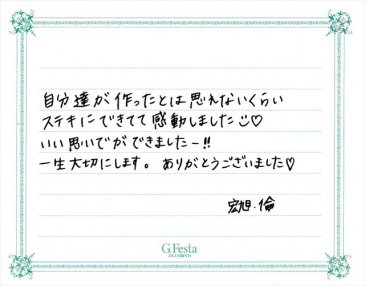 自分達が作ったとは思えないくらい
ステキにできてて感動しました☺♡
いい思いでができましたー!!
一生大切にします。ありがとうございました♡
宏旭・倫
G.Festa